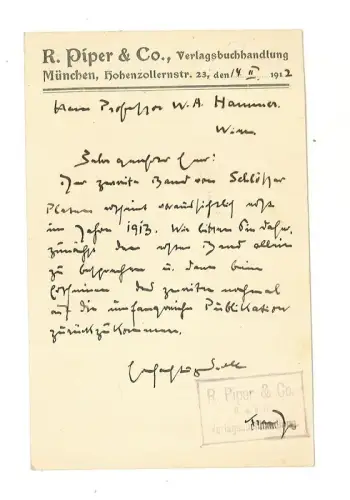 R. Piper & Co., Verlagsbuchhandlung
München, Hohenzollernstr. 23, den 14 II 1912
Herrn Professor W. A. Hammer.
Wien.
Sehr geehrter Herr!
Der zweite Band von Schlösser
Platen erscheint voraussichtlich erst
im Jahre 1913. Wir bitten Sie daher,
zunächst den ersten Band allein
zu besprechen u. dann beim
Erscheinen des zweiten nochmal
auf die umfangreiche Publikation
zurückzukommen.
Hochachtungsvoll
R. Piper & Co.
Verlagsbuchhandlung